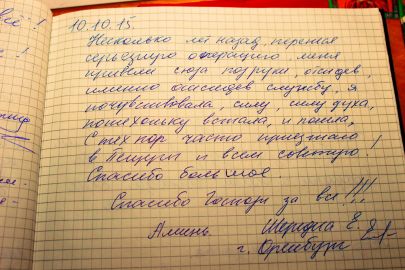 всё!
10.10.15
Несколько лет назад, перенеся
серьёзную операцию, меня
привели сюда под руки, отсидев,
именно отсидев службу, я
почувствовала, силу, силу духа,
потихоньку встала, и пошла.
С тех пор часто приезжаю
в Печуры и всем советую!
Спасибо большое
Спасибо Господи за все!!!
Аминь Е.
г. Оренбург